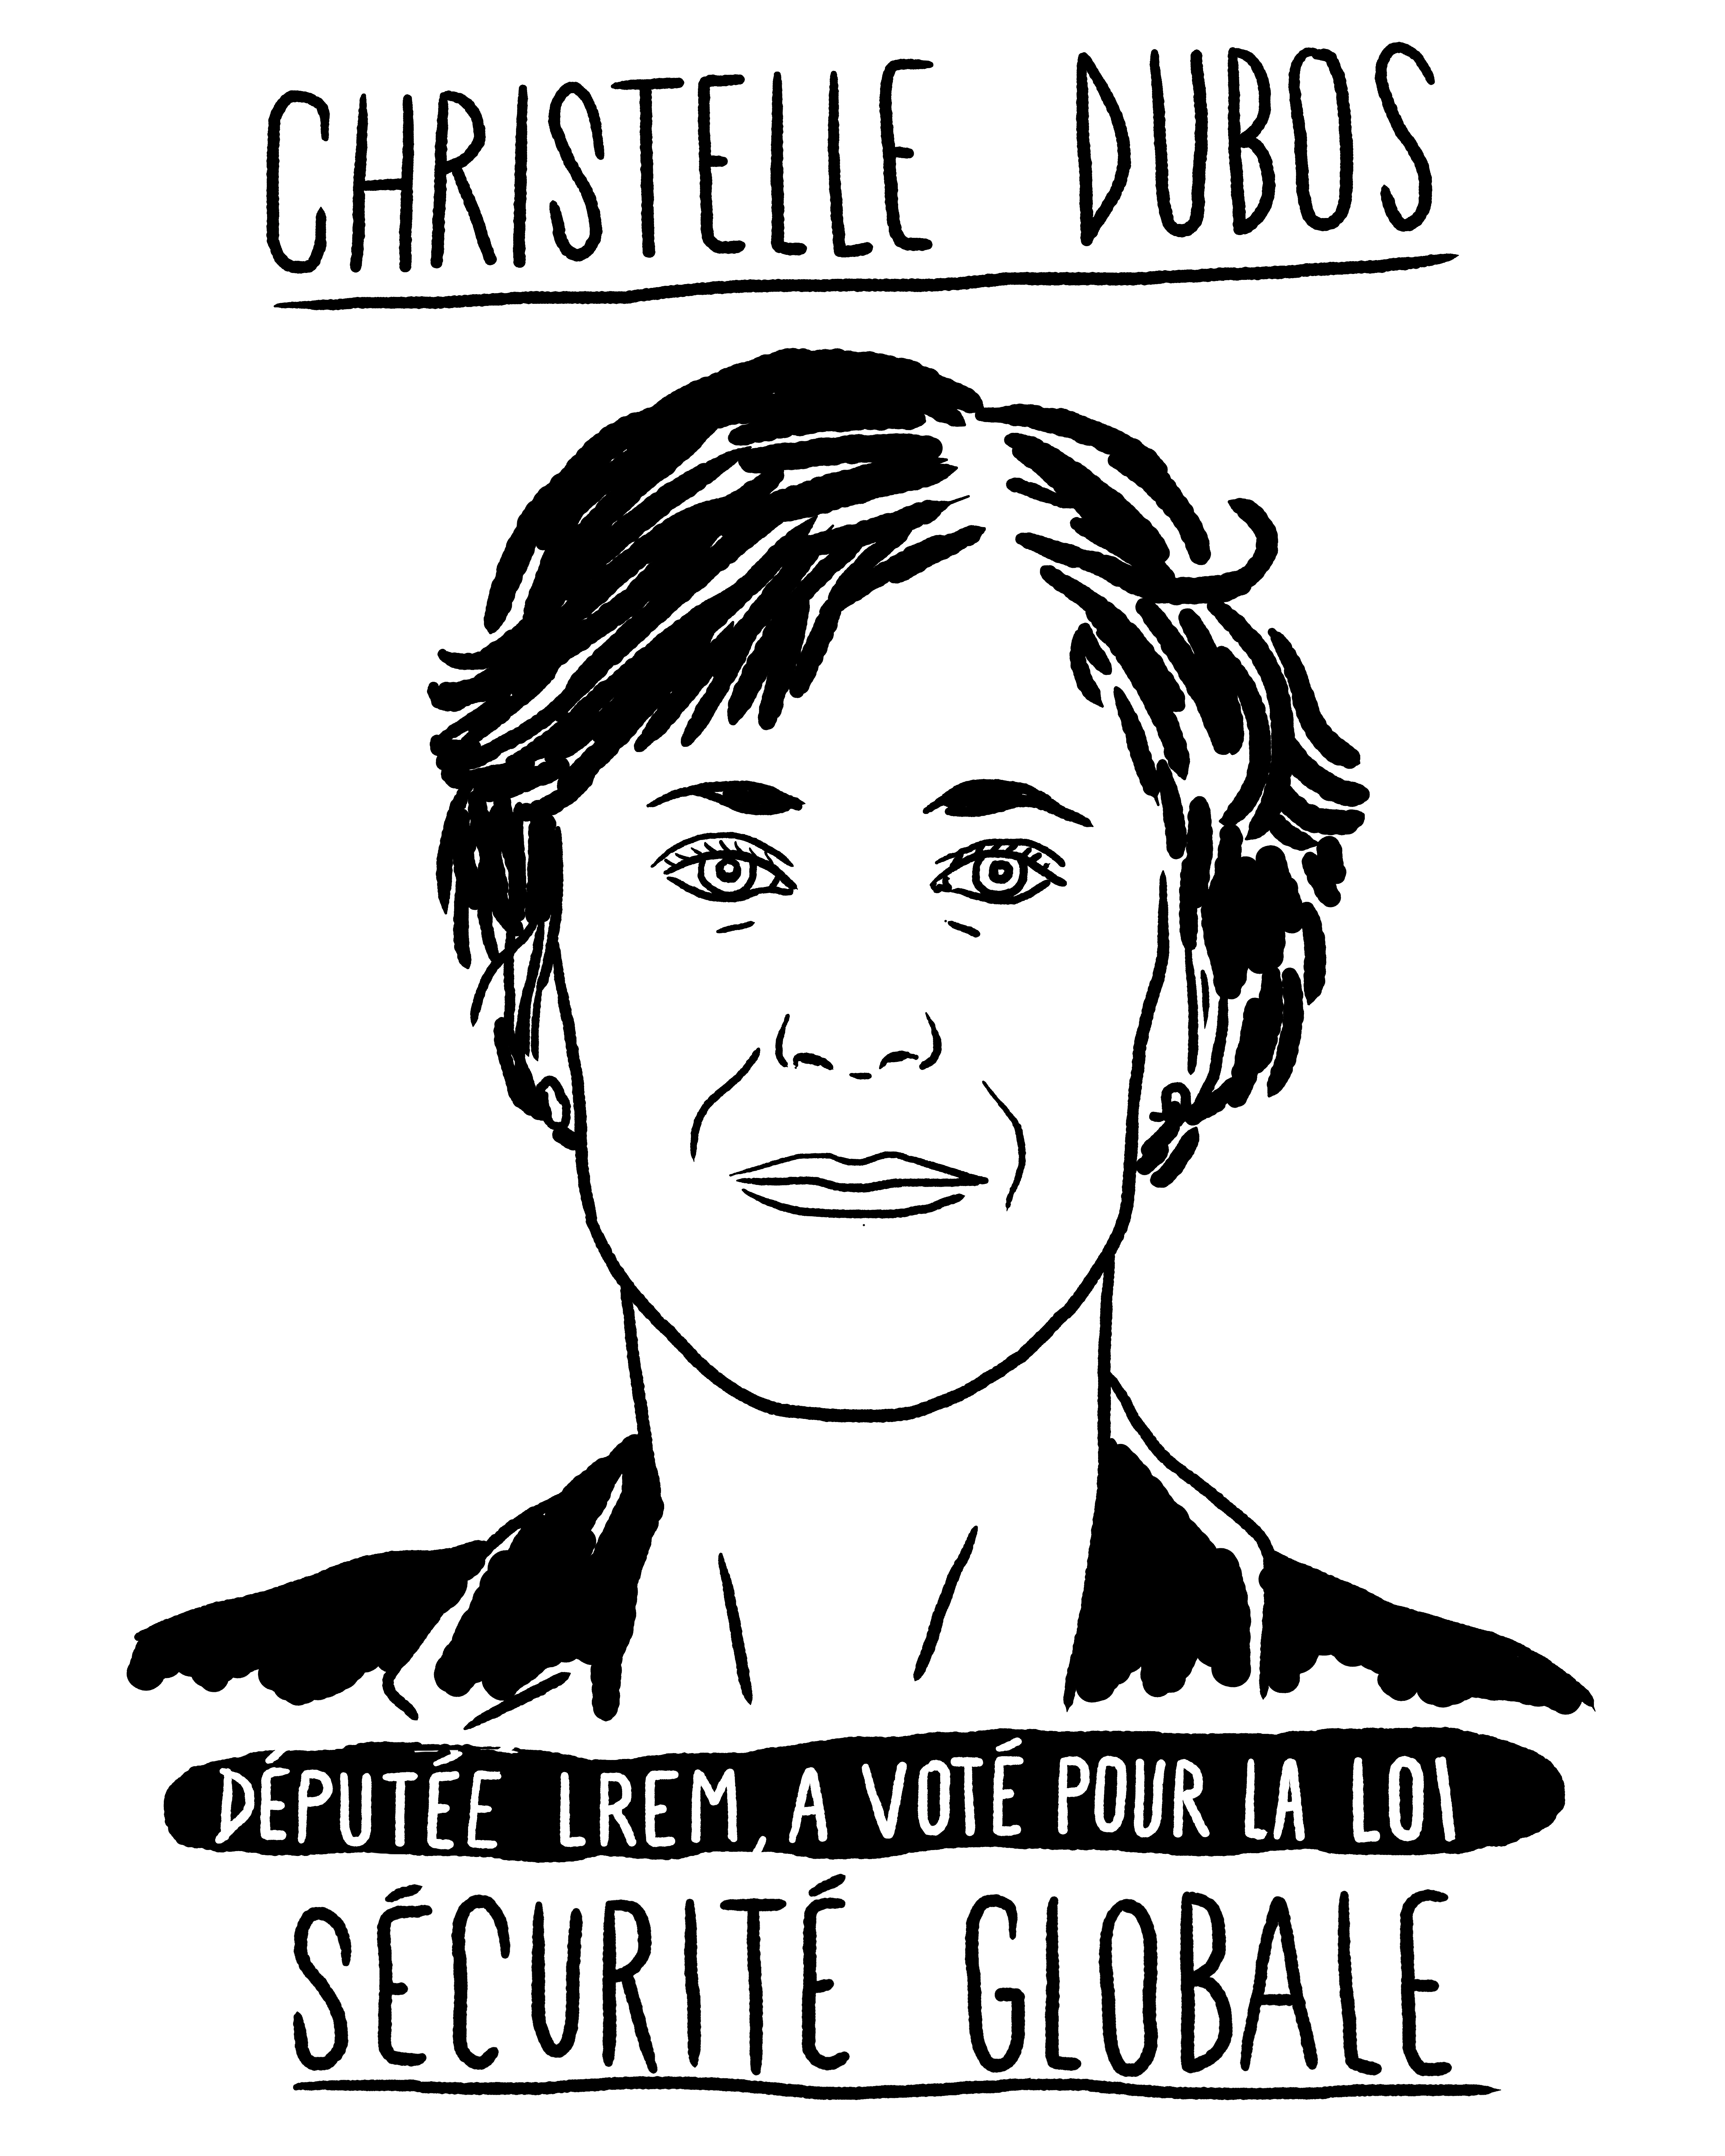 CHRISTELLE DUBOS
DÉPUTÉE LREM, A VOTÉ POUR LA LOI
SÉCURITÉ GLOBALE